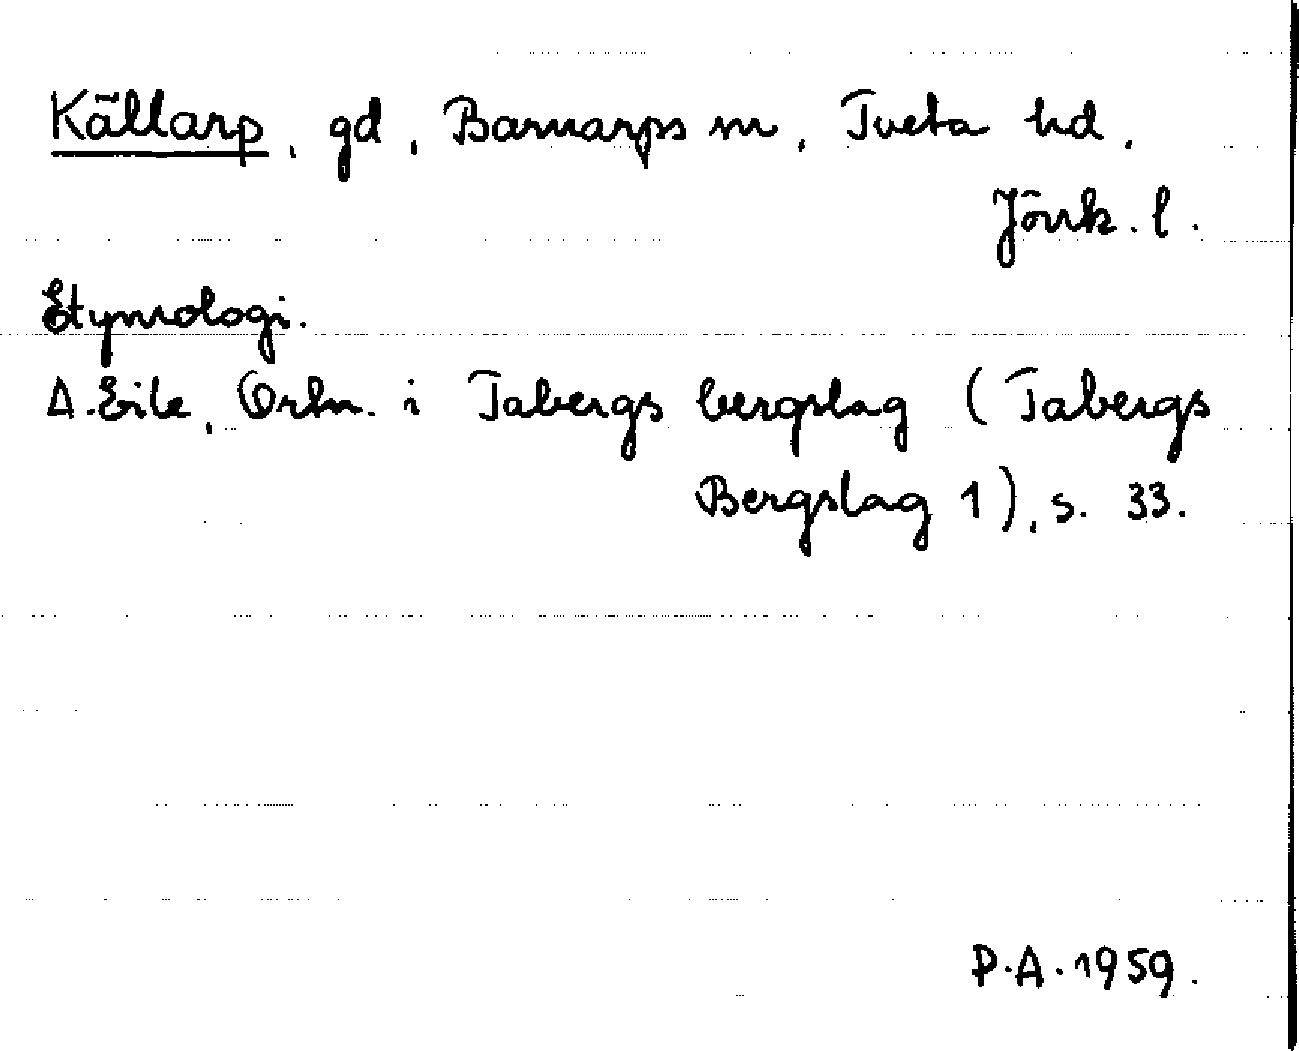 Källarp, gd, Barnarps sn, Tveta hd,
Jönk. l.
Etymologi.
A. Ejle, Ortn. i Tabergs bergslag (Tabergs
Bergslag 1), s. 33.
P.A. 1959.